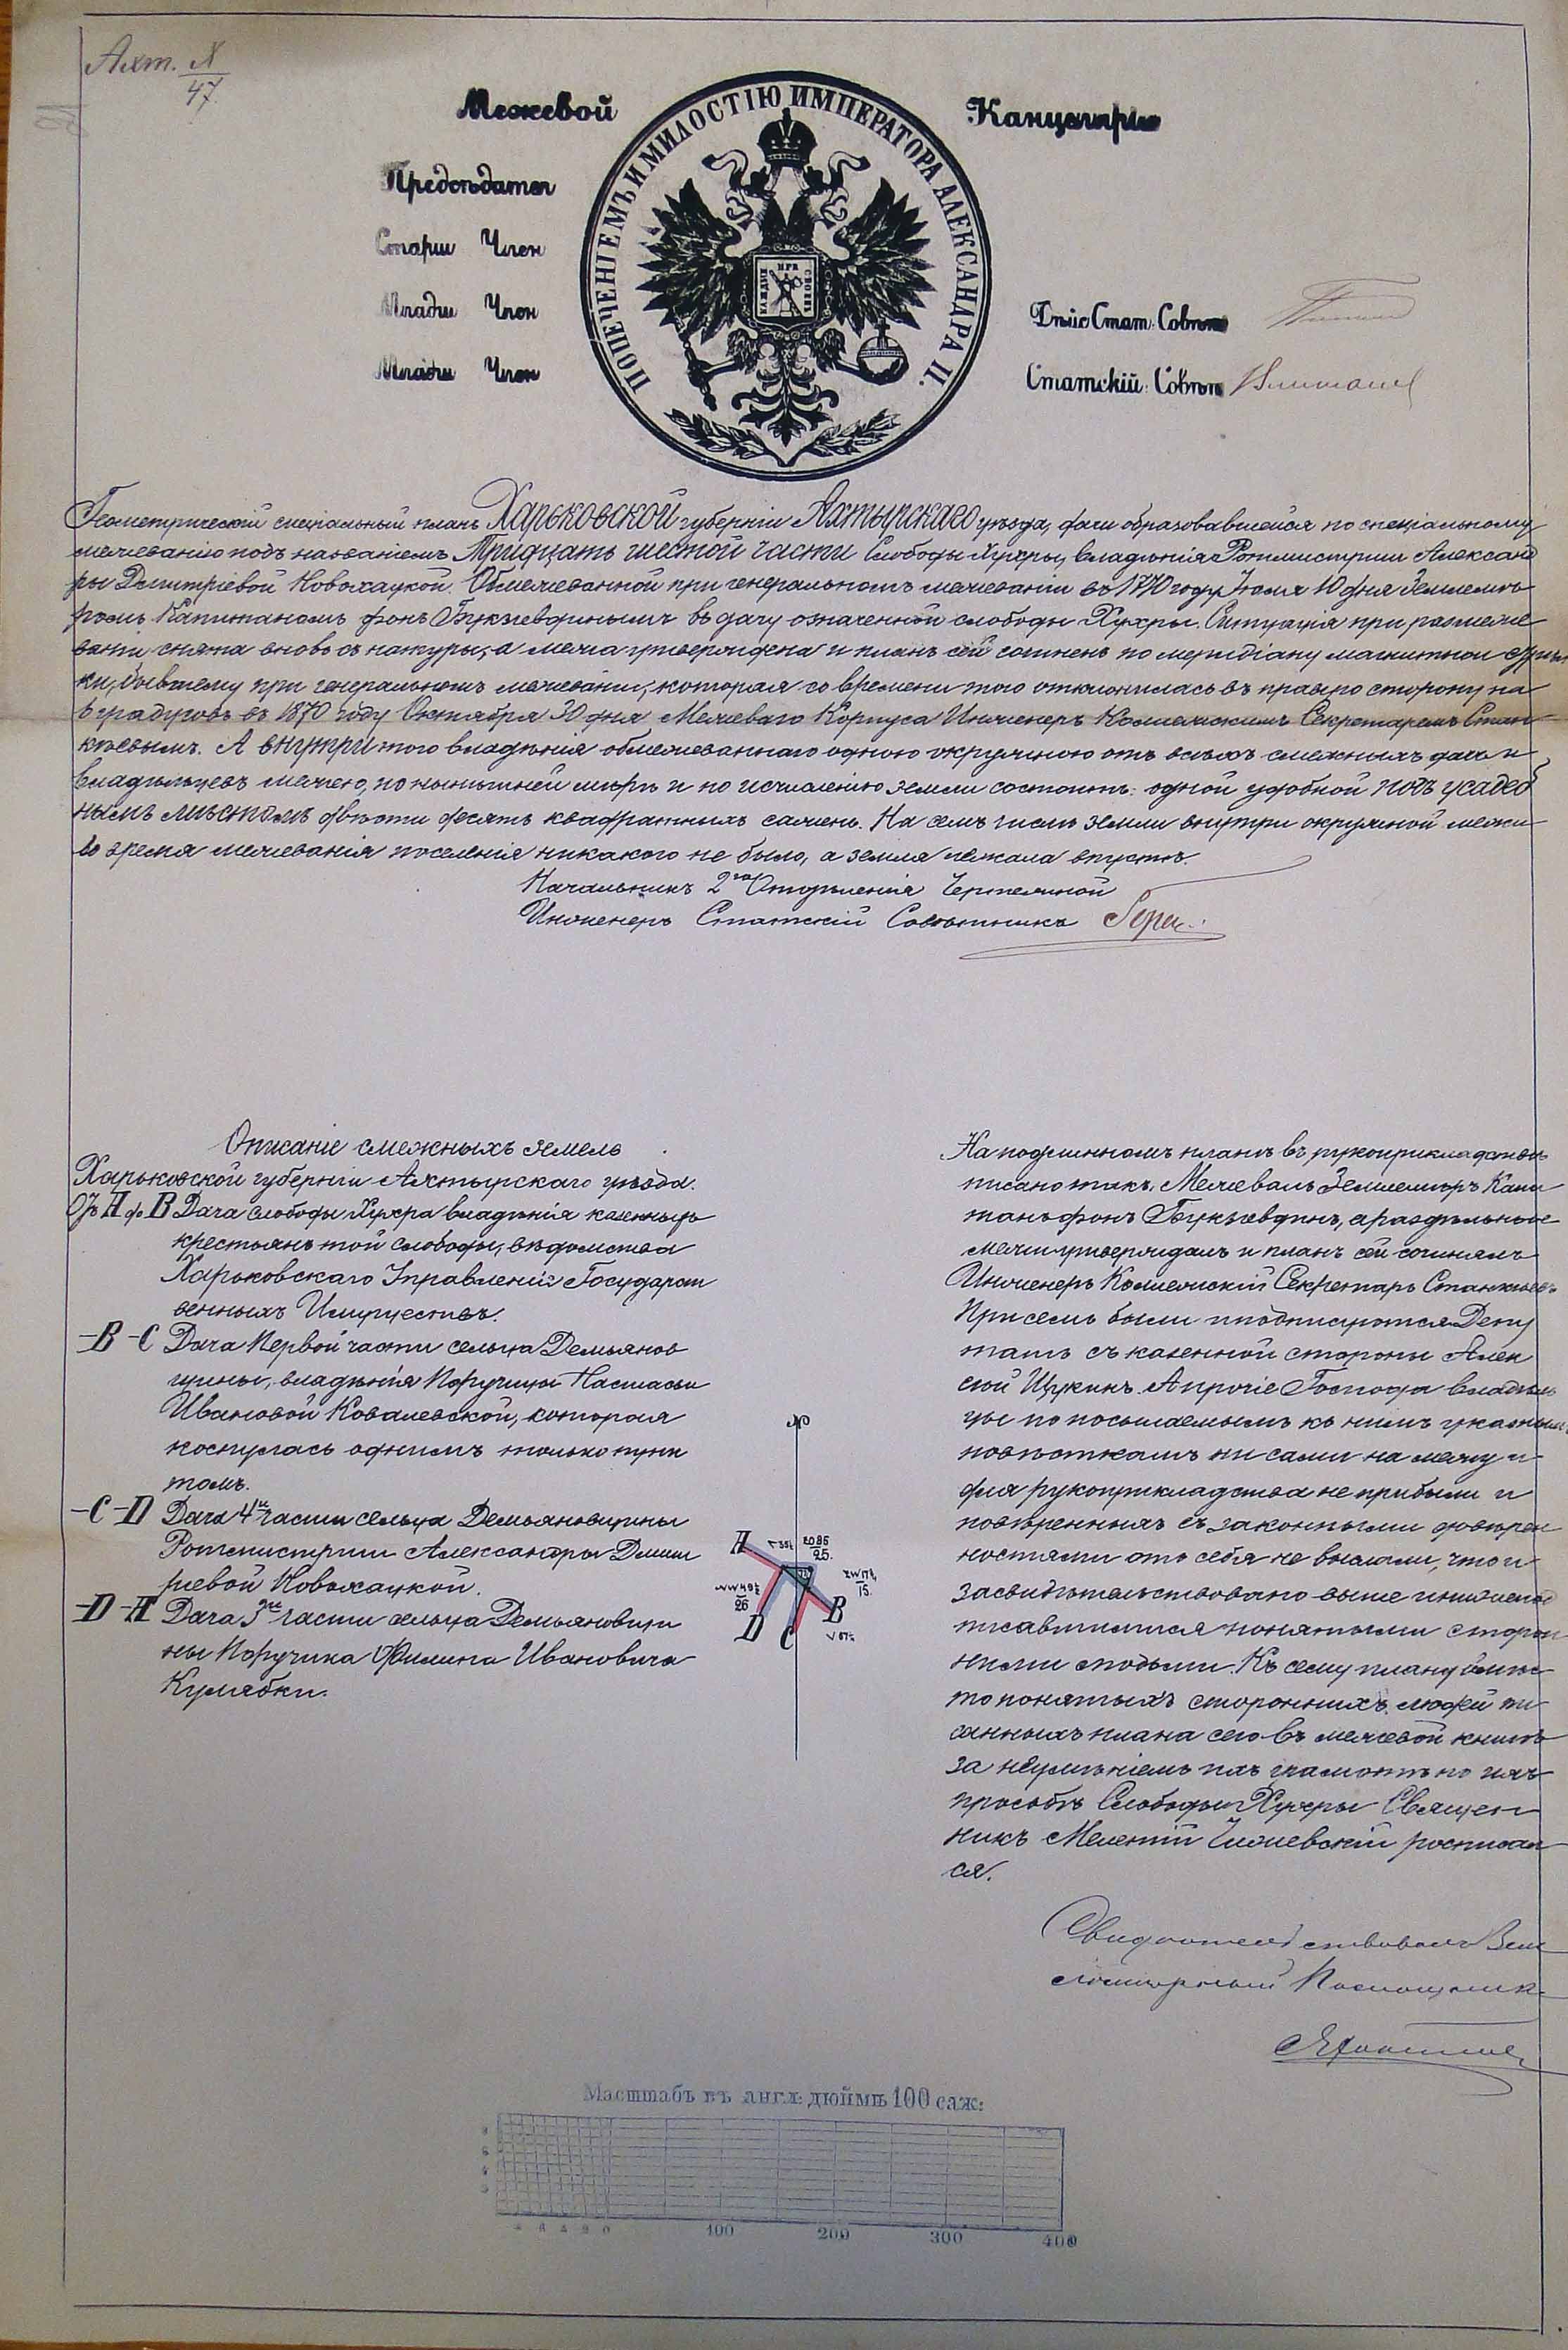 Ахт. N
47.
Межевой Канцеляріи
ПОПЕЧЕНІЕМЪ И МИЛОСТІЮ ИМПЕРАТОРА АЛЕКСАНДРА II.
Предсѣдател
Старш Член
Младш Член Дѣйс Стат. Совѣт
Младш Член Статскій Совѣт
Геометрическій спеціальный планъ Харьковской губерніи Ахтырскаго уѣзда, дачи образовавшейся по спеціальному
межеванію подъ названіемъ Тридцать шестой части Слободы Хухры, владѣнія Ротмистрши Александ
ры Дмитріевой Новохацкой. Обмежеванной при генеральномъ межеваніи въ 1770 году Іюля 10 дня Землемѣ
ромъ Капитаномъ фонъ Буксгевдинымъ въ дачу означенной слободы Хухры. Ситуація при размеже
ваніи снята вновь съ натуры, а межа утверждена и планъ сей сочиненъ по меридіану магнитной стрѣл
ки, бывшему при генеральномъ межеваніи, которая со времени того отклонилась въ правую сторону на
6 градусовъ въ 1870 году Октября 30 дня Межеваго Корпуса Инженеръ Коллежскимъ Секретаремъ Стан
кѣевымъ. А внутри того владѣнія обмежеваннаго одною окружною отъ всѣхъ смежныхъ дачъ и
владѣльцевъ межею, по нынѣшней мѣрѣ и по исчисленію земли состоитъ: одной удобной подъ усадеб
нымъ мѣстомъ двѣсти десять квадратныхъ сажень. На семъ числѣ земли внутри окружной межи
во время межеванія поселенія никакого не было, а земля лежала впустѣ.
Начальникъ 2го Отдѣленія Чертежной
Инженеръ Статскій Совѣтникъ
Описаніе смежныхъ земель
Харьковской губерніи Ахтырскаго уѣзда.
Отъ А до В Дача слободы Хухра владѣнія казенныхъ
крестьянъ той слободы, вѣдомства
Харьковскаго Управленія Государст
венныхъ Имуществъ.
– В – С Дача Первой части сельца Демьянов
щины, владѣнія Поручицы Настасьи
Ивановой Ковалевской, которая
коснулась однимъ только пунк
томъ.
– С – D Дача 4й части сельца Демьяновщины
Ротмистрши Александры Дмит
ріевой Новохацкой.
– D – А Дача 3й части сельца Демьяновщи
ны Поручика Филипа Ивановича
Кулябки.
N
A
B
C
D
На подлинномъ планѣ въ рукоприкладствѣ
писано такъ. Межевалъ Землемѣръ Капи
танъ фонъ Буксгевдинъ, а раздѣльные
межи утверждалъ и планъ сей сочинялъ
Инженеръ Коллежскій Секретарь Станкѣевъ
При семъ были и подписуются Депу
татъ съ казенной стороны Алек
сѣй Щукинъ. А прочіе Господа владѣль
цы по посылаемымъ къ нимъ указнымъ
повѣсткамъ ни сами на межу и
для рукоприкладства не прибыли и
повѣренныхъ съ законными довѣрен
ностями отъ себя не выслали, что и
засвидѣтельствовано выше
понятыми сторон
ними людьми. Къ сему плану вмѣс
то понятыхъ стороннихъ людей пи
санныхъ плана сего въ межевой книгѣ
за неумѣніемъ ихъ грамотѣ по ихъ
прозьбѣ Слободы Хухры Священ
никъ Мелетій росписал
ся.
Свидѣтельствовалъ Зем
лемѣрный Помощникъ
Масштабъ въ англ: дюймѣ 100 саж:
0 100 200 300 400